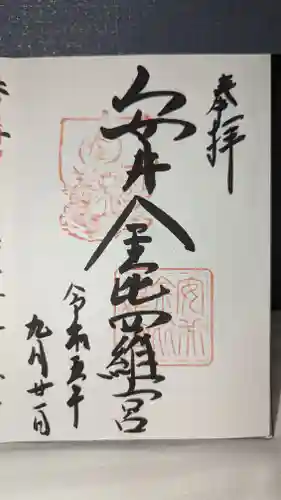 奉拝
安井金比羅宮
令和五年
九月廿一日